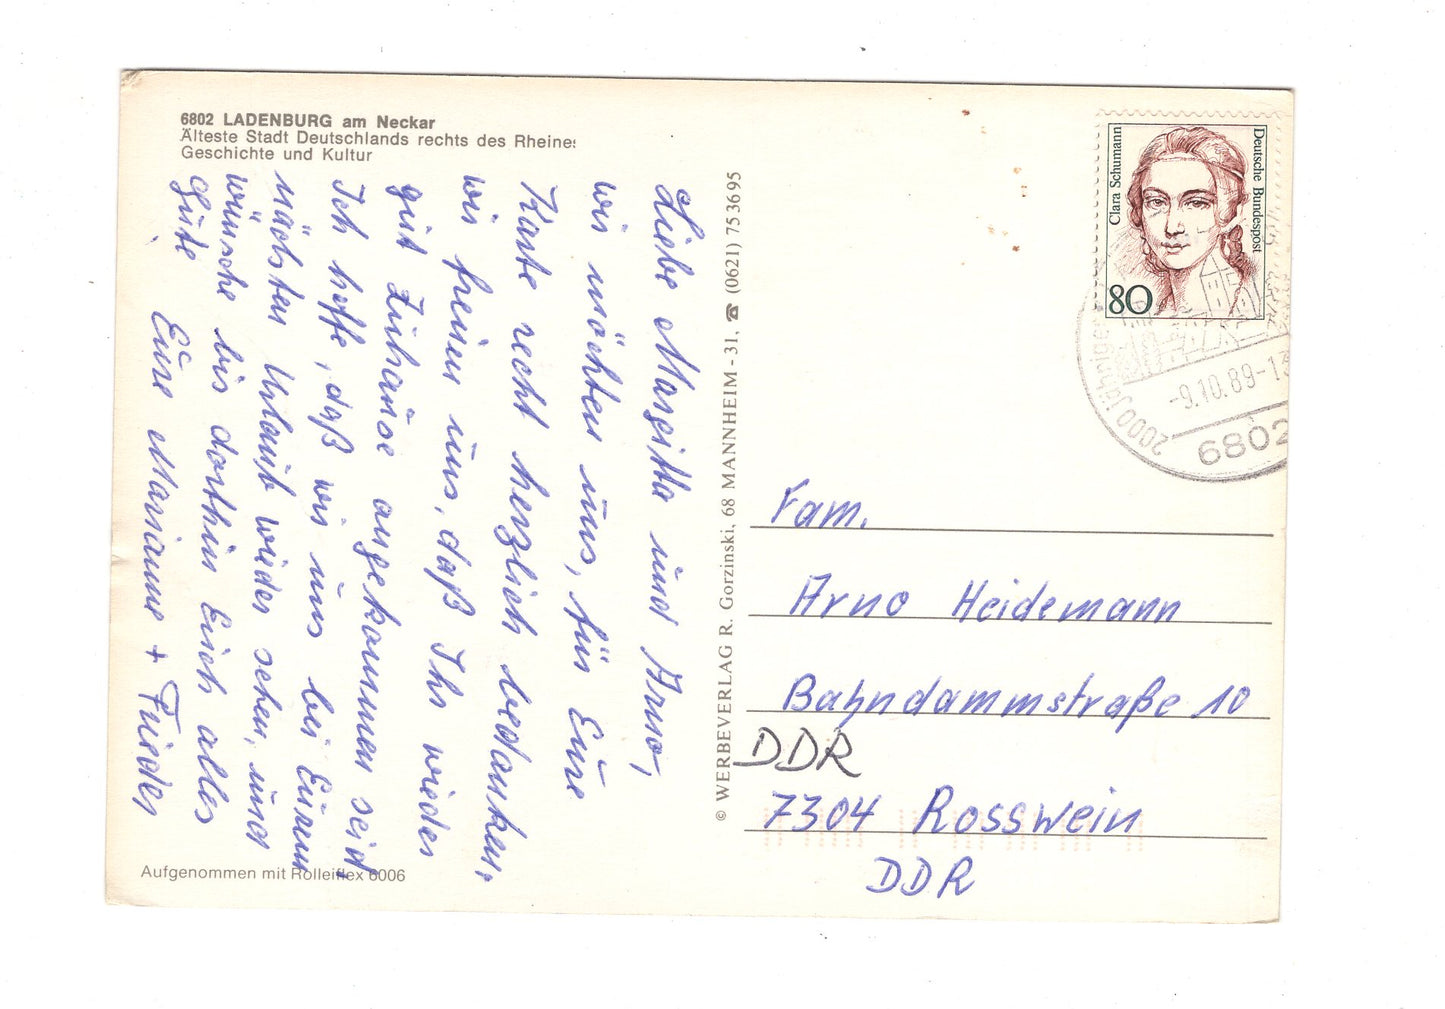 6802 LADENBURG am Neckar
Älteste Stadt Deutschlands rechts des Rheines
Geschichte und Kultur
Liebe Margitta und Arno,
wir möchten uns, für Eure
Karte recht herzlich bedanken.
wir freuen uns, daß Ihr wieder
gut Zuhause angekommen seid
Ich hoffe, daß wir uns bei Eurem
nächsten Urlaub wieder sehen, und
wünsche bis dorthin Euch alles
Gute,
Eure Marianne + Frieder
Aufgenommen mit Rolleiflex 6006
© WERBEVERLAG R. Gorzinski, 68 MANNHEIM - 31, ☎ (0621) 753695
Clara Schumann
Deutsche Bundespost
80
2000 Jähriges
-9.10.89-13
6802
Fam.
Arno Heidemann
Bahndammstraße 10
DDR
7304 Rosswein
DDR